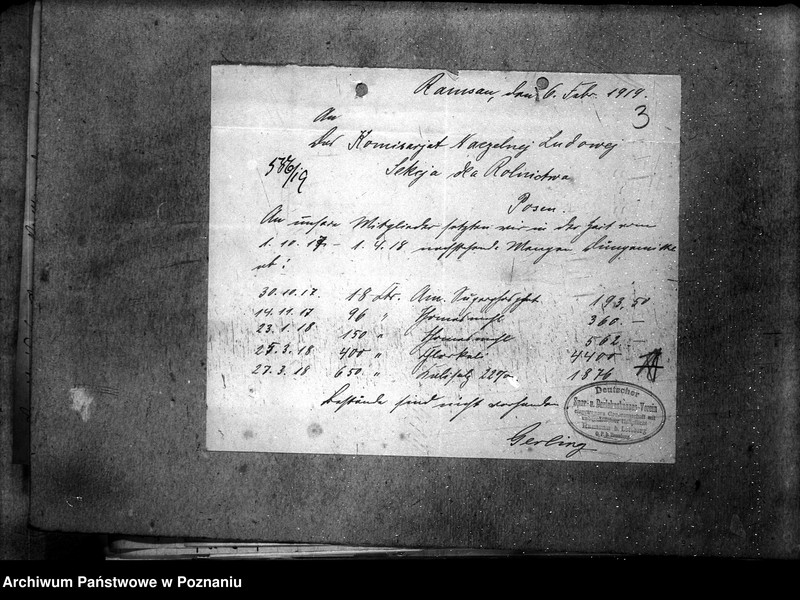 Ramsau, den 6. Febr. 1919.
3
An
Das Komisarjat Naczelnej Ludowej
586/19
Sekcja dla Rolnictwa
Posen.
An unsere Mitglieder setzten wir in der Zeit vom
1.10.17 - 1.4.18 nachstehende Mengen Düngemittel
ab:
30.10.17. 18 Ztr. Am. Superphosphat 193,50
14.11.17 96 " Thomasmehl 360.-
23.1.18 150 " Thomasmehl 562.-
25.3.18 400 " Chlorkali 4400-
27.3.18 650 " Kalisalz 22% 1876
Bestände sind nicht vorhanden
Deutscher
Spar- u. Darlehnskassen-Verein
Gerling
Archiwum Państwowe w Poznaniu